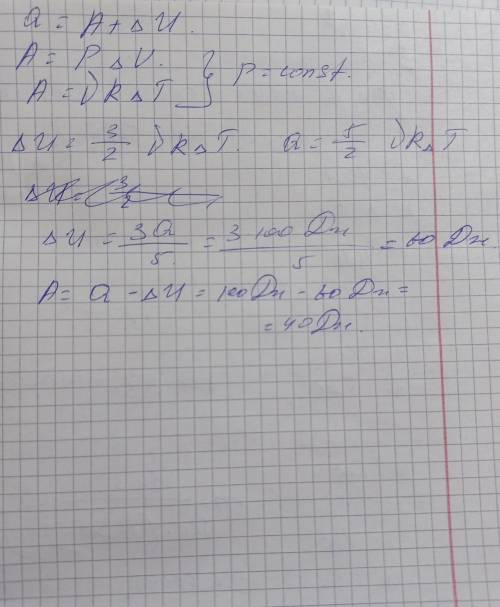 Q = A + ΔU.
A = PΔV.
A = νRΔT } p = const.
ΔU = 3/2 νRΔT. Q = 5/2 νRΔT
ΔU = 3Q/5 = 3·100 Дж/5 = 60 Дж
A = Q - ΔU = 100 Дж - 60 Дж =
= 40 Дж.